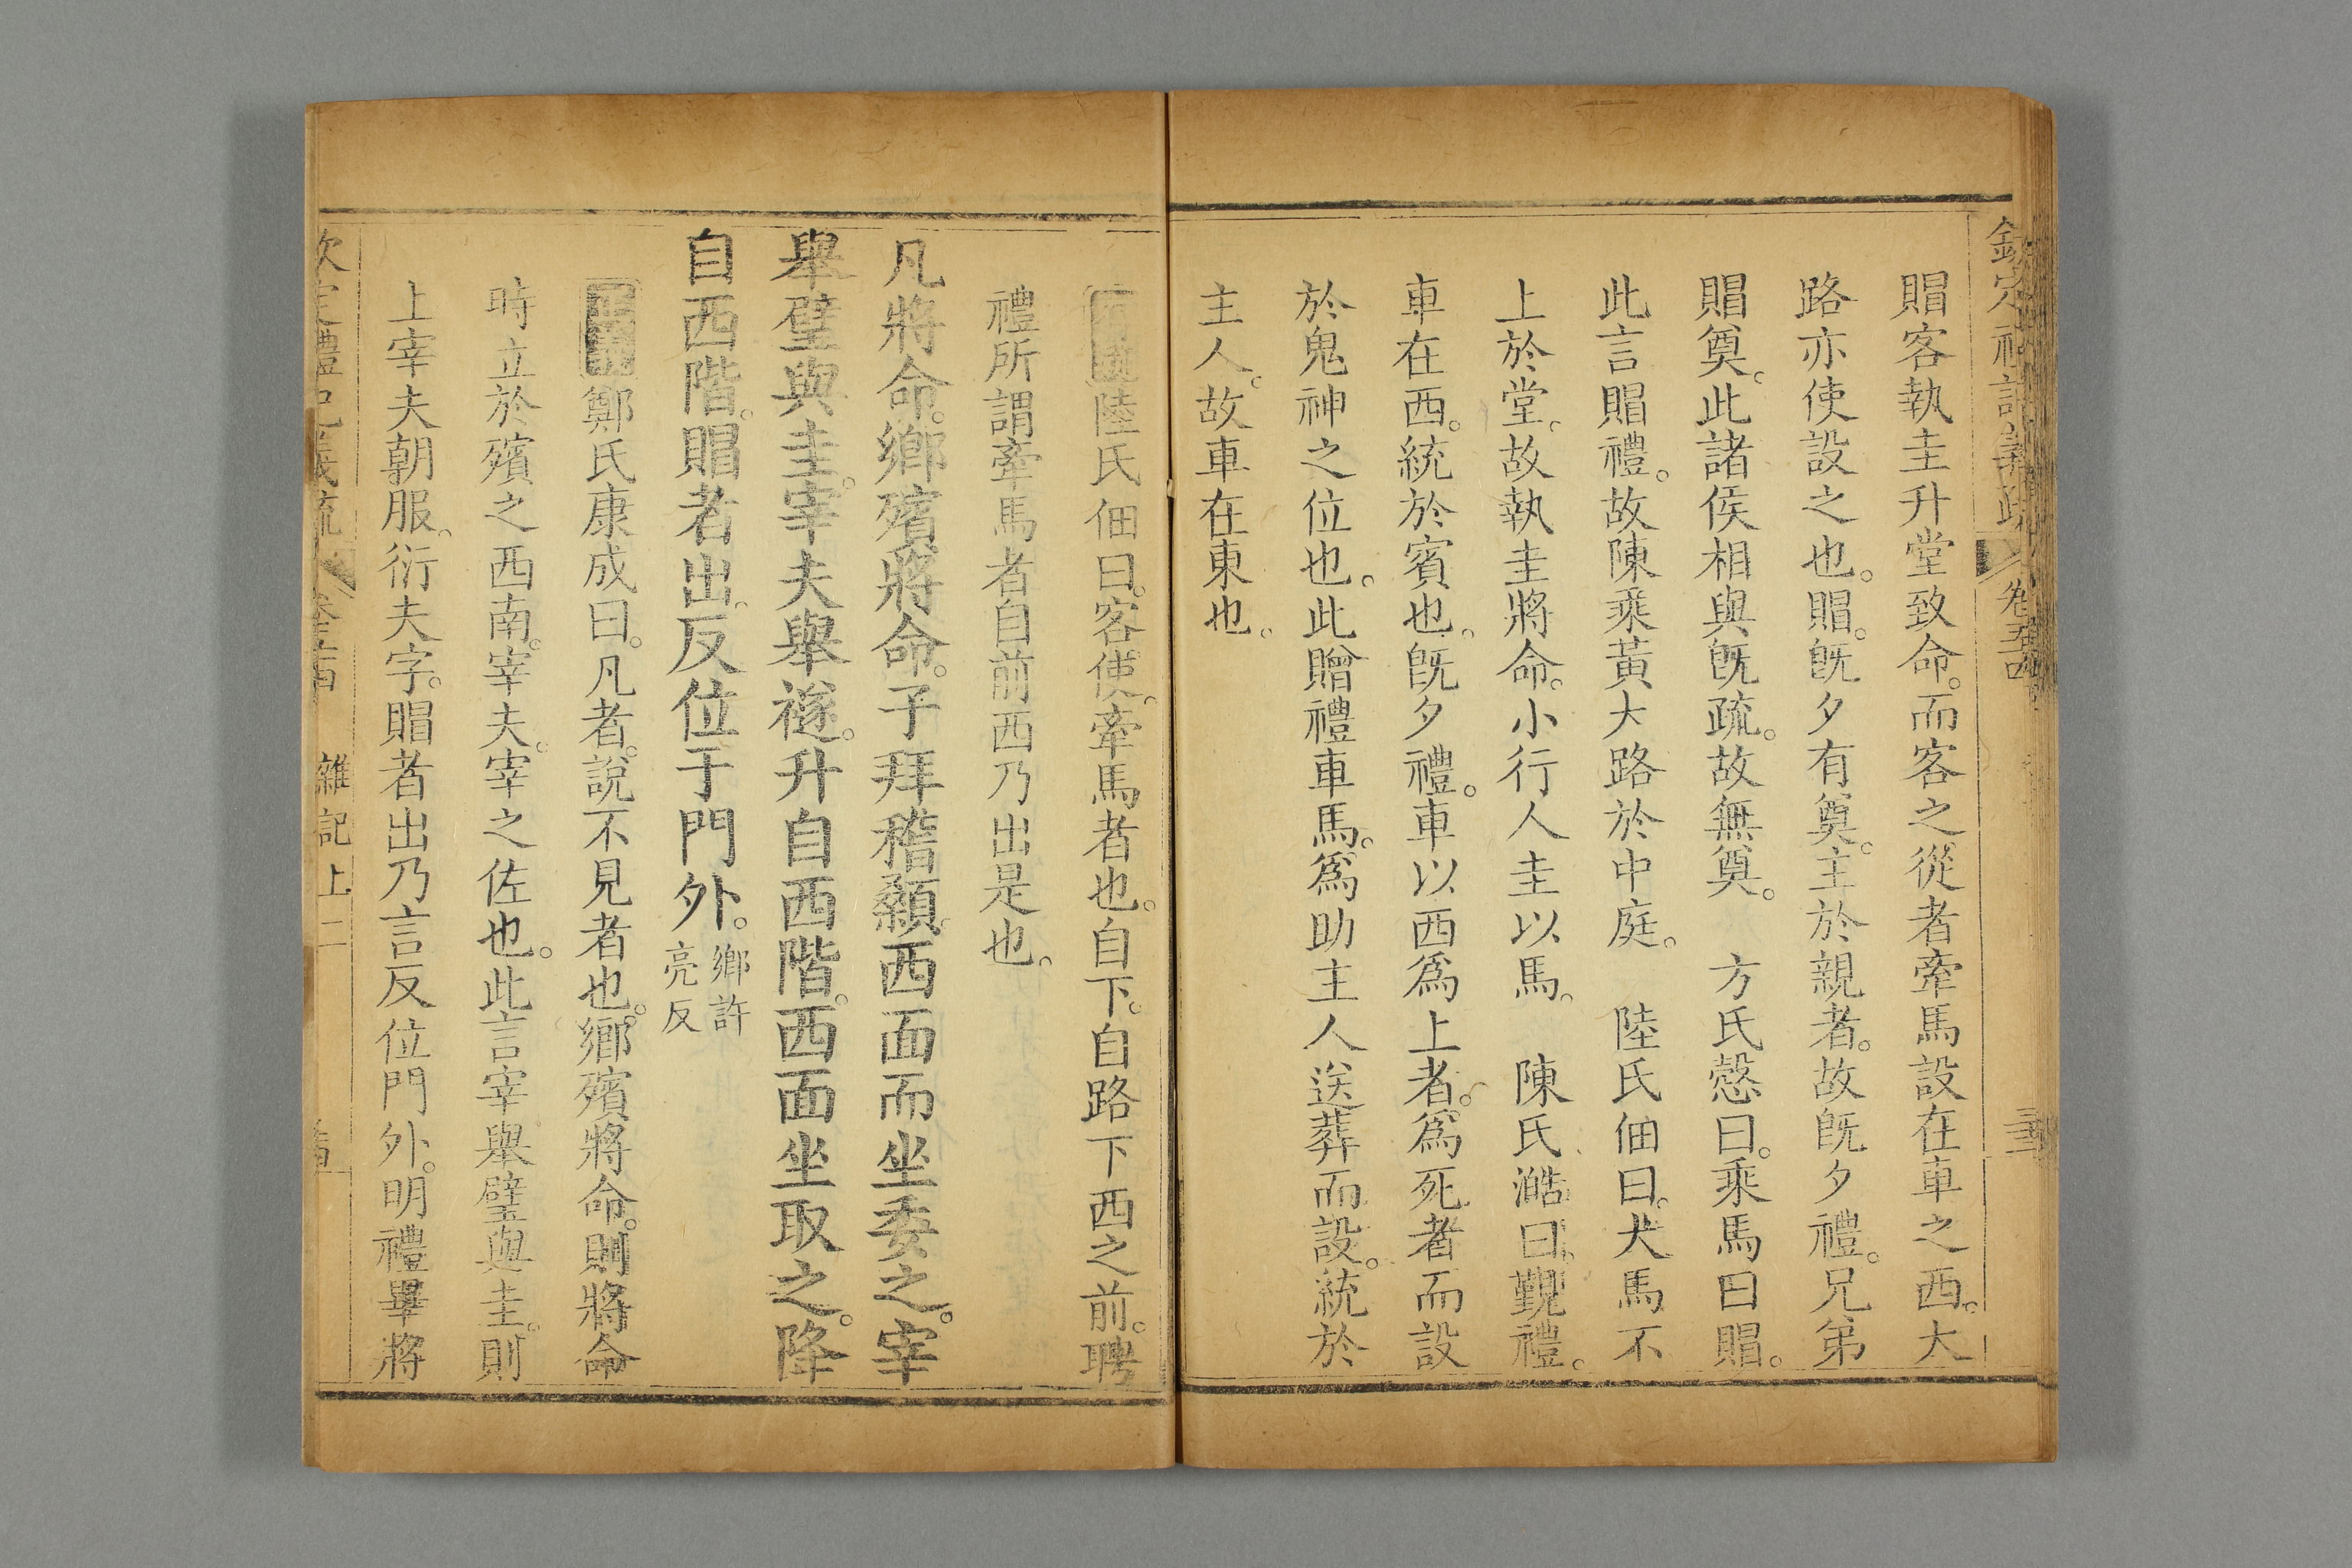 欽定禮記義疏 卷五十四
賵客執圭升堂致命。而客之從者牽馬設在車之西。大
路亦使設之也。賵。旣夕有奠。主於親者。故旣夕禮。兄弟
賵奠。此諸侯相與旣疏。故無奠。 方氏慤曰。乘馬曰賵。
此言賵禮。故陳乘黃大路於中庭。 陸氏佃曰。犬馬不
上於堂。故執圭將命。小行人圭以馬。 陳氏澔曰。覲禮。
車在西。統於賓也。旣夕禮。車以西爲上者。爲死者而設
於鬼神之位也。此贈禮車馬。爲助主人送葬而設。統於
主人。故車在東也。
陸氏佃曰。客使。牽馬者也。自下。自路下西之前。聘
禮所謂牽馬者自前西乃出是也。
凡將命。鄉殯將命。子拜稽顙。西面而坐委之。宰
舉璧與圭。宰夫舉襚。升自西階。西面坐取之。降
自西階。賵者出。反位于門外。鄉許亮反
鄭氏康成曰。凡者。說不見者也。鄉殯將命。則將命
時立於殯之西南。宰夫。宰之佐也。此言宰舉璧與圭。則
上宰夫朝服。衍夫字。賵者出乃言反位門外。明禮畢將
欽定禮記義疏 雜記上二